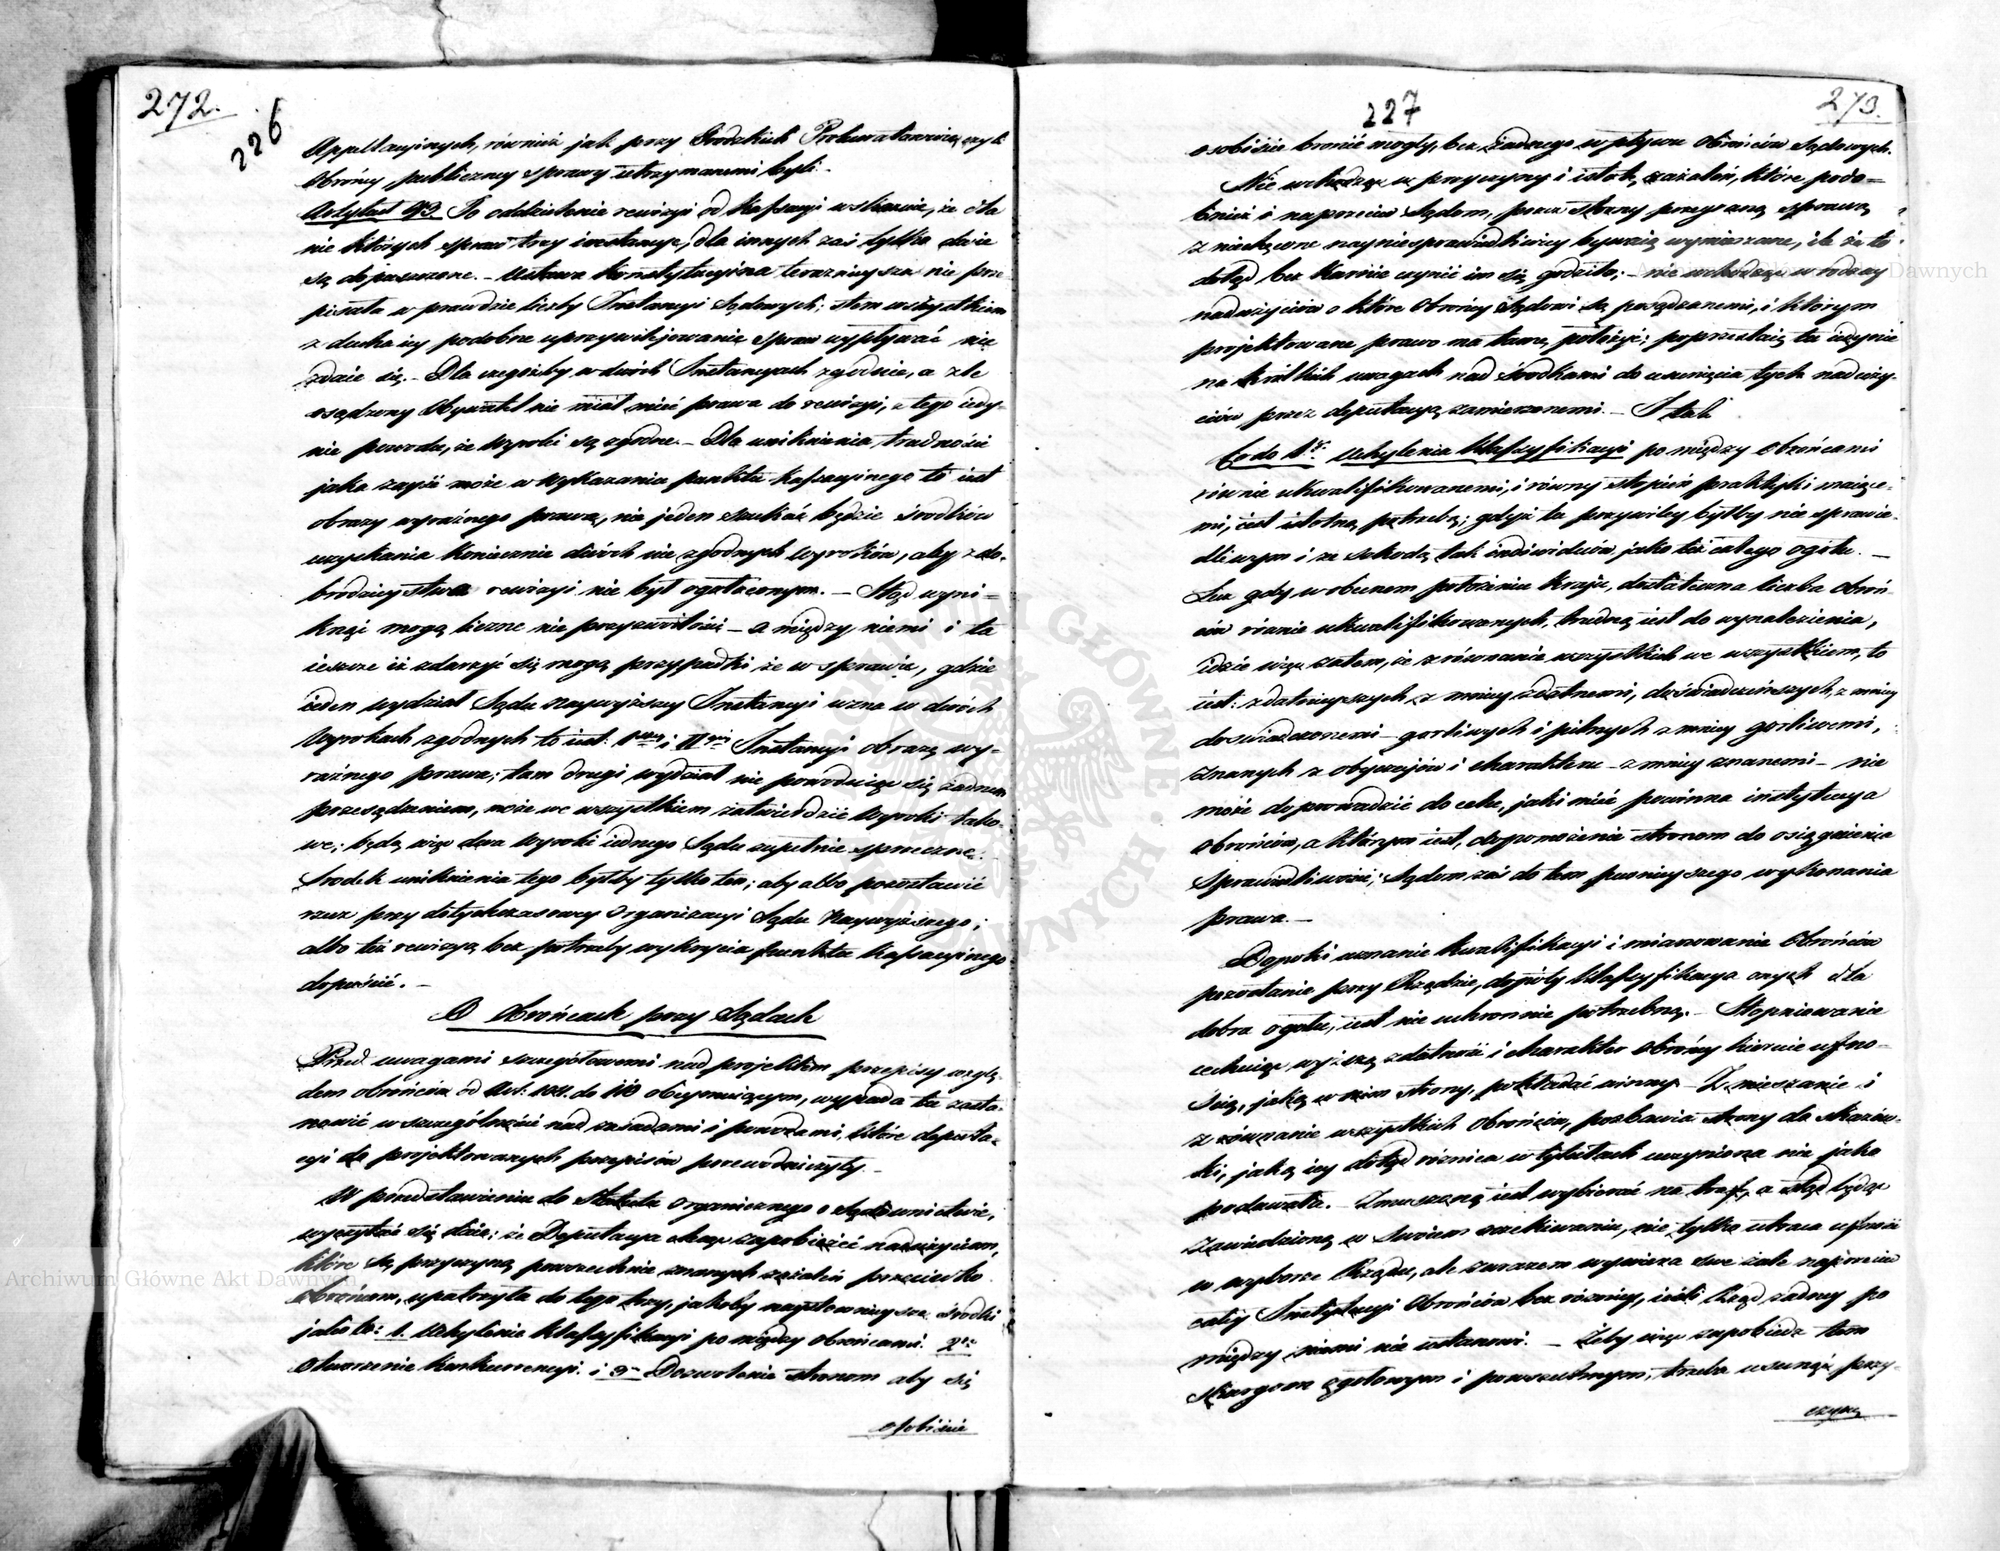 272.
226
Appellacyinych, również jak przy Grodzkich Prokuratorowie, czyli
Obrońcy publiczney sprawy utrzymanemi byli. -
Artykuł 93. To oddzielenie rewizyi od Kassacyi wskazuie, że dla
nie których spraw trzy instancye, dla innych zaś tylko dwie
są dopuszczone. - Ustawa Konstytucyina teraznieysza nie prze-
pisała w prawdzie liczby Instancyi Sądowych; z tem wszystkiem
z ducha iey podobne uprzywilejowanie spraw wypływać nie
zdaie się. - Dla czegożby w dwóch Instancyach zgodnie, a zle
osądzony Obywatel nie miał mieć prawa do rewizyi, z tego iedy-
nie powodu, że wyroki są zgodne. - Dla uniknienia trudności
jaka zayść może w wykazaniu punktu kassacyinego to iest
obrazy wyraźnego prawa, nie jeden szukać będzie środków
uzyskania koniecznie dwóch nie zgodnych wyroków, aby z do-
brodzieystwa rewizyi nie był ogołoconym. - Stąd wyni-
knąć mogą liczne nie przyzwoitości - a między niemi i ta
ieszcze iż zdarzyć się mogą przypadki że w sprawie, gdzie
ieden wydział Sądu naywyższey Instancyi uzna w dwóch
Wyrokach zgodnych to iest: Iszey i IIgiey Instancyi obrazę wy-
raźnego prawa; tam drugi wydział nie powoduiąc się żadnem
przesądzeniem, może we wszystkiem zatwierdzić Wyroki tako-
we; będą więc dwa Wyroki iednego Sądu zupełnie sprzeczne.
Srodek uniknienia tego byłby tylko ten; aby albo pozostawić
rzecz przy dotychczasowey Organizacyi Sądu Naywyższego;
albo też rewizyą bez potrzeby wykrycia punktu kassacyinego
dopuścić. -
O Obrońcach przy Sądach
Przed uwagami szczegółowemi nad projektem przepisy wzglę-
dem obrońców od Art: 101. do 110 obeymuiącym, wypada tu zasta-
nowić w szczególności nad zasadami i powodami, które deputa-
cyi do projektowanych przepisów przewodniczyły. -
W przedstawieniu do Statutu organicznego o sądownictwie,
wyczytać się daie; że Deputacya chcąc zapobieżeć nadużyciom,
które są przyczyną powszechnie znanych zażaleń przeciwko
obrońcom, upatrzyła do tego trzy, jakoby naystownieysze środki
jako to: 1. Uchylenie klassyfikacyi po między obrońcami. 2re
Otworzenie konkurrencyi. i 3e Dozwolenie stronom aby się
osobiście
227
273.
osobiście bronić mogły, bez żadnego wpływu Obrońców Sądowych.
Nie wchodząc w przyczyny i istotę zażaleń, które podo-
bnież i naprzeciw Sądom, przez strony przegraną sprawą
zniechęcone nayniesprawiedliwiey bywaią wymierzane, ile że to
dotąd bez karnie czynić im się godziło; - nie wchodząc w rodzay
nadużyciów o które Obrońcy Sądowi są posądzanemi, i którym
projektowane prawo ma tamę położyć; poprzestaię tu iedynie
na krótkich uwagach nad środkami do usunięcia tych naduży-
ciów przez deputacyą zamierzonemi. - I tak
Co do 1o. Uchylenia klassyfikacyi po między obrońcami
równie ukwalifikowanemi, i równy stopień praktyki maiące-
mi, iest istotną potrzebą; gdyż ta przywiley byłby nie sprawie-
dliwym i ze szkodą tak indiwiduów, jako też całego ogółu. -
Lecz gdy w obecnem położeniu kraju, dostateczna liczba obroń-
ców równie ukwalifikowanych, trudną iest do wynalezienia,
idzie więc zatem, że zrównanie wszystkich we wszystkiem, to
iest: zdatnieyszych z mniey zdatnemi, doświadczeńszych z mniey
doświadczonemi - gorliwych i pilnych z mniey gorliwemi,
znanych z obyczajów i charakteru - z mniey znanemi - nie
może doprowadzić do celu, jaki mieć powinna instytucya
Obrońców, a którym iest, dopomożenie stronom do osiągnienia
Sprawiedliwości; Sądom zaś do tem pewnieyszego wykonania
prawa. -
Dopóki uznanie kwalifikacyi i mianowanie Obrońców
pozostanie przy Rządzie, dopóty klassyfikacya onych dla
dobra ogółu, iest nie uchronnie potrzebną. - Stopniowanie
cechuiąc wyższą zdatność i charakter Obrońcy kieruie ufno-
ścią, jaką w nim strony, pokładać winny. - Zmieszanie i
zrównanie wszystkich Obrońców, pozbawia strony do skazów-
ki, jaką iey dotąd różnica w tytułach uczyniona nie jako
podawała. - Zmuszoną iest wybierać na traf, a stąd będąc
zawiedzioną w swoiem oczekiwaniu, nie tylko utraca ufność
w wyborze Rządu, ale zarazem wywiera swe żale naprzeciw
całey Instytucyi Obrońców bez różnicy, ieśli Rząd żadney po
między niemi nie ustanowi. - Żeby więc zapobiedz tem
skargom ogólnym i powszechnym, trzeba usunąć przy-
czynę